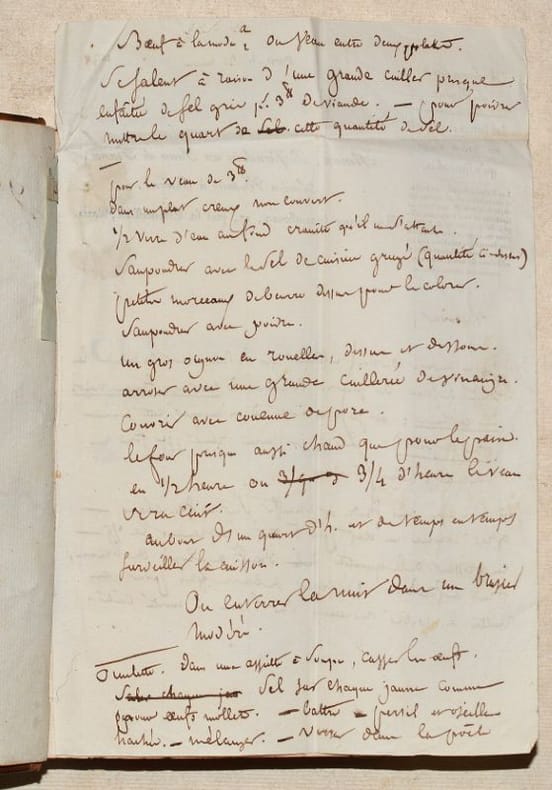 Bœuf à la mode ou veau entre deux plats.
Se salent à raison d'une grande cuiller presque
de sel gris p. 3 ₶ de viande. — pour poivre
mettre le quart de sel cette quantité de sel.
pour le veau de 3 ₶.
dans un plat creux non couvert.
1/2 verre d'eau au fond crainte qu'il ne s'attache.
Saupoudrer avec le sel de cuisine grugé (quantité ci-dessus)
petits morceaux de beurre dessus pour le colorer.
Saupoudrer avec poivre.
Un gros ognon en rouelles, dessus et dessous.
arroser avec une grande cuillerée de vinaigre.
Couvrir avec couenne de porc.
le four presque aussi chaud que pour le pain.
en 1/2 heure ou 3/4 d'heure le veau
sera cuit.
au bout d'un quart d'h. et de temps en temps
surveiller la cuisson.
Ou enterrer la nuit dans un brasier
modéré.
Omelette. Dans une assiette à soupe, casser les œufs.
chaque Sel sur chaque jaune comme
pour œufs mollets. — battre — persil et oseille
hachés. — mélanger. — verser dans la poêle